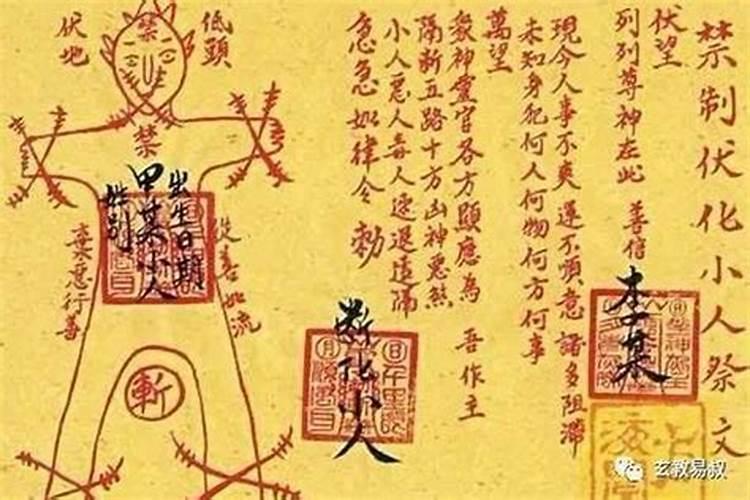 禁制伏化小人祭文
伏望
列列尊神在此 善信 李某
現今人事不爽 運不順意 諸多阻滯
未知身犯何人何物何方何事
萬望
衆神靈官各方顯應為 吾作主
隔斷五路十方凶神惡煞
小人惡人毒人速退遠隔
急急如律令 勅
斷化小人
低頭
伏地
禁
禁
出生日期
甲某小人
姓別
從善如流
棄惡行善
斬
玄教易叔